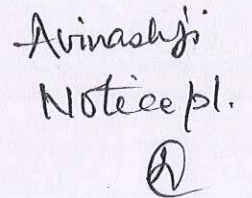 Avinashji
Notice pl.